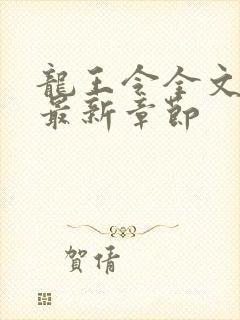 龍王令全文
最新章節
賀倩